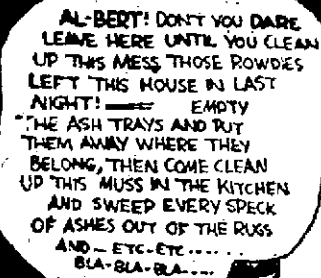 AL-BERT! DON'T YOU DARE
LEAVE HERE UNTIL YOU CLEAN
UP THIS MESS THOSE ROWDIES
LEFT THIS HOUSE IN LAST
NIGHT! — EMPTY
THE ASH TRAYS AND PUT
THEM AWAY WHERE THEY
BELONG, THEN COME CLEAN
UP THIS MUSS IN THE KITCHEN
AND SWEEP EVERY SPECK
OF ASHES OUT OF THE RUGS
AND — ETC-ETC.....
BLA-BLA-BLA....